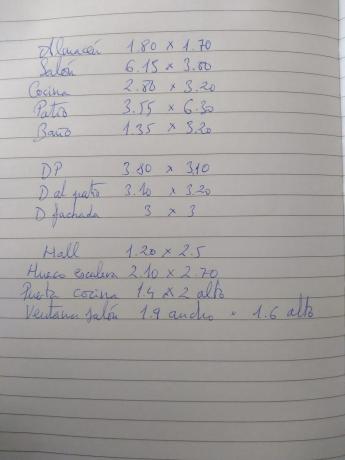 Almacén 1.80 × 1.70
Salón 6.15 × 3.80
Cocina 2.80 × 3.20
Patio 3.55 × 6.30
Baño 1.35 × 3.20
DP 3.80 × 3.10
D al patio 3.10 × 3.20
D fachada 3 × 3
Hall 1.20 × 2.5
Hueco escalera 2.10 × 2.70
Puerta cocina 1.4 × 2 alto
Ventana salón 1.9 ancho × 1.6 alto